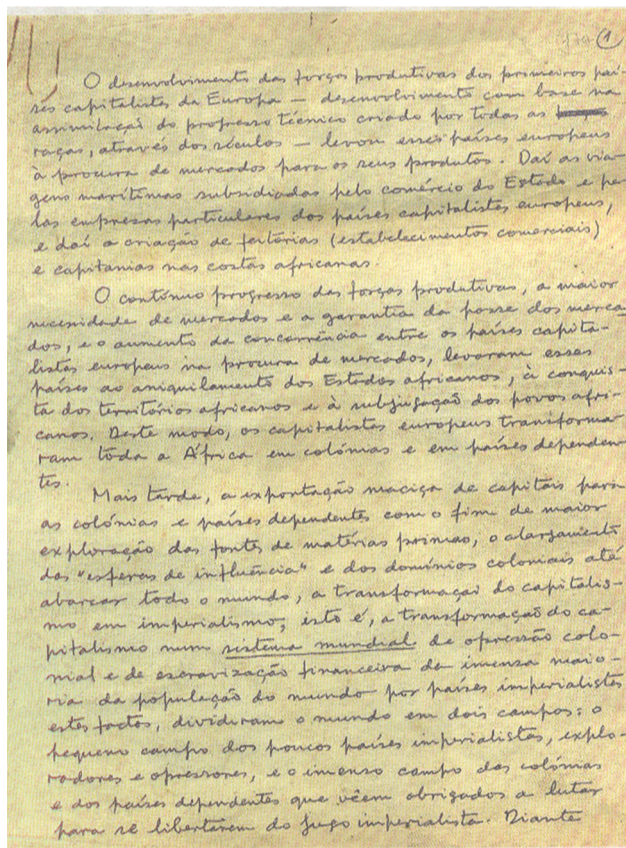 1
O desenvolvimento das forças produtivas dos primeiros paí-
ses capitalistas da Europa — desenvolvimento com base na
assimilação do progresso técnico criado por todas as
raças, através dos séculos — levou esses países europeus
à procura de mercados para os seus produtos. Daí as via-
gens marítimas subsidiadas pelo comércio do Estado e pe-
las empresas particulares dos países capitalistas europeus,
e daí a criação de feitorias (estabelecimentos comerciais)
e capitanias nas costas africanas.
O contínuo progresso das forças produtivas, a maior
necesidade de mercados e a garantia da posse dos merca-
dos, e o aumento da concorrência entre os países capita-
listas europeus na procura de mercados, levaram esses
países ao aniquilamento dos Estados africanos, à conquis-
ta dos territórios africanos e à subjugação dos povos afri-
canos. Deste modo, os capitalistas europeus transforma-
ram toda a África em colónias e em países dependen-
tes.
Mais tarde, a exportação maciça de capitais para
as colónias e países dependentes com o fim de maior
exploração das fontes de matérias primas, o alargamento
das "esferas de influência" e dos domínios coloniais até
abarcar todo o mundo, a transformação do capitalis-
mo em imperialismo, isto é, a transformação do ca-
pitalismo num sistema mundial de opressão colo-
nial e de escravização financeira da imensa maio-
ria da população do mundo por países imperialistas
estes factos, dividiram o mundo em dois campos: o
pequeno campo dos poucos países imperialistas, explo-
radores e opressores, e o imenso campo das colónias
e dos países dependentes que vêem obrigados a lutar
para se libertarem do jugo imperialista. Diante